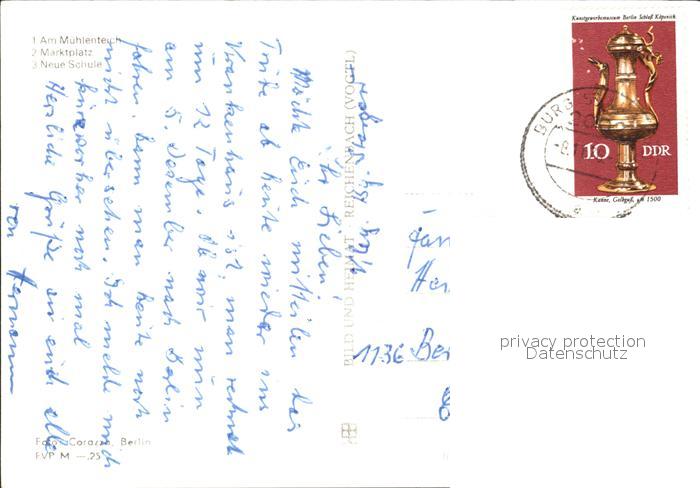 1 Am Mühlenteich
2 Marktplatz
3 Neue Schule
Ihr Lieben!
Möchte Euch mitteilen das
Trude ab heute wieder ins
Krankenhaus ist, man rechnet
nun 12 Tage. Ob wir nun
am 5. Dezember nach Berlin
fahren, kann man heute noch
nicht übersehen. Ich melde mich
vorher noch mal
Herzliche Grüße an euch alle
von Hermann
Foto: Corazza, Berlin
FVP M —.25
BILD UND HEIMAT REICHENBACH (VOGTL)
Kunstgewerbemuseum Berlin Schloß Köpenick
10 DDR
Kanne, Gelbguß, um 1500
BURG
Fam
Her
1136 Ber
privacy protection
Datenschutz